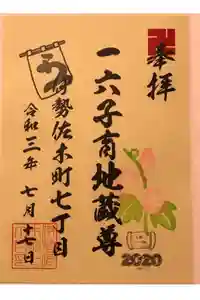 奉拝
一六子育地蔵尊
伊勢佐木町七丁目
令和三年 七月 十七日
2020